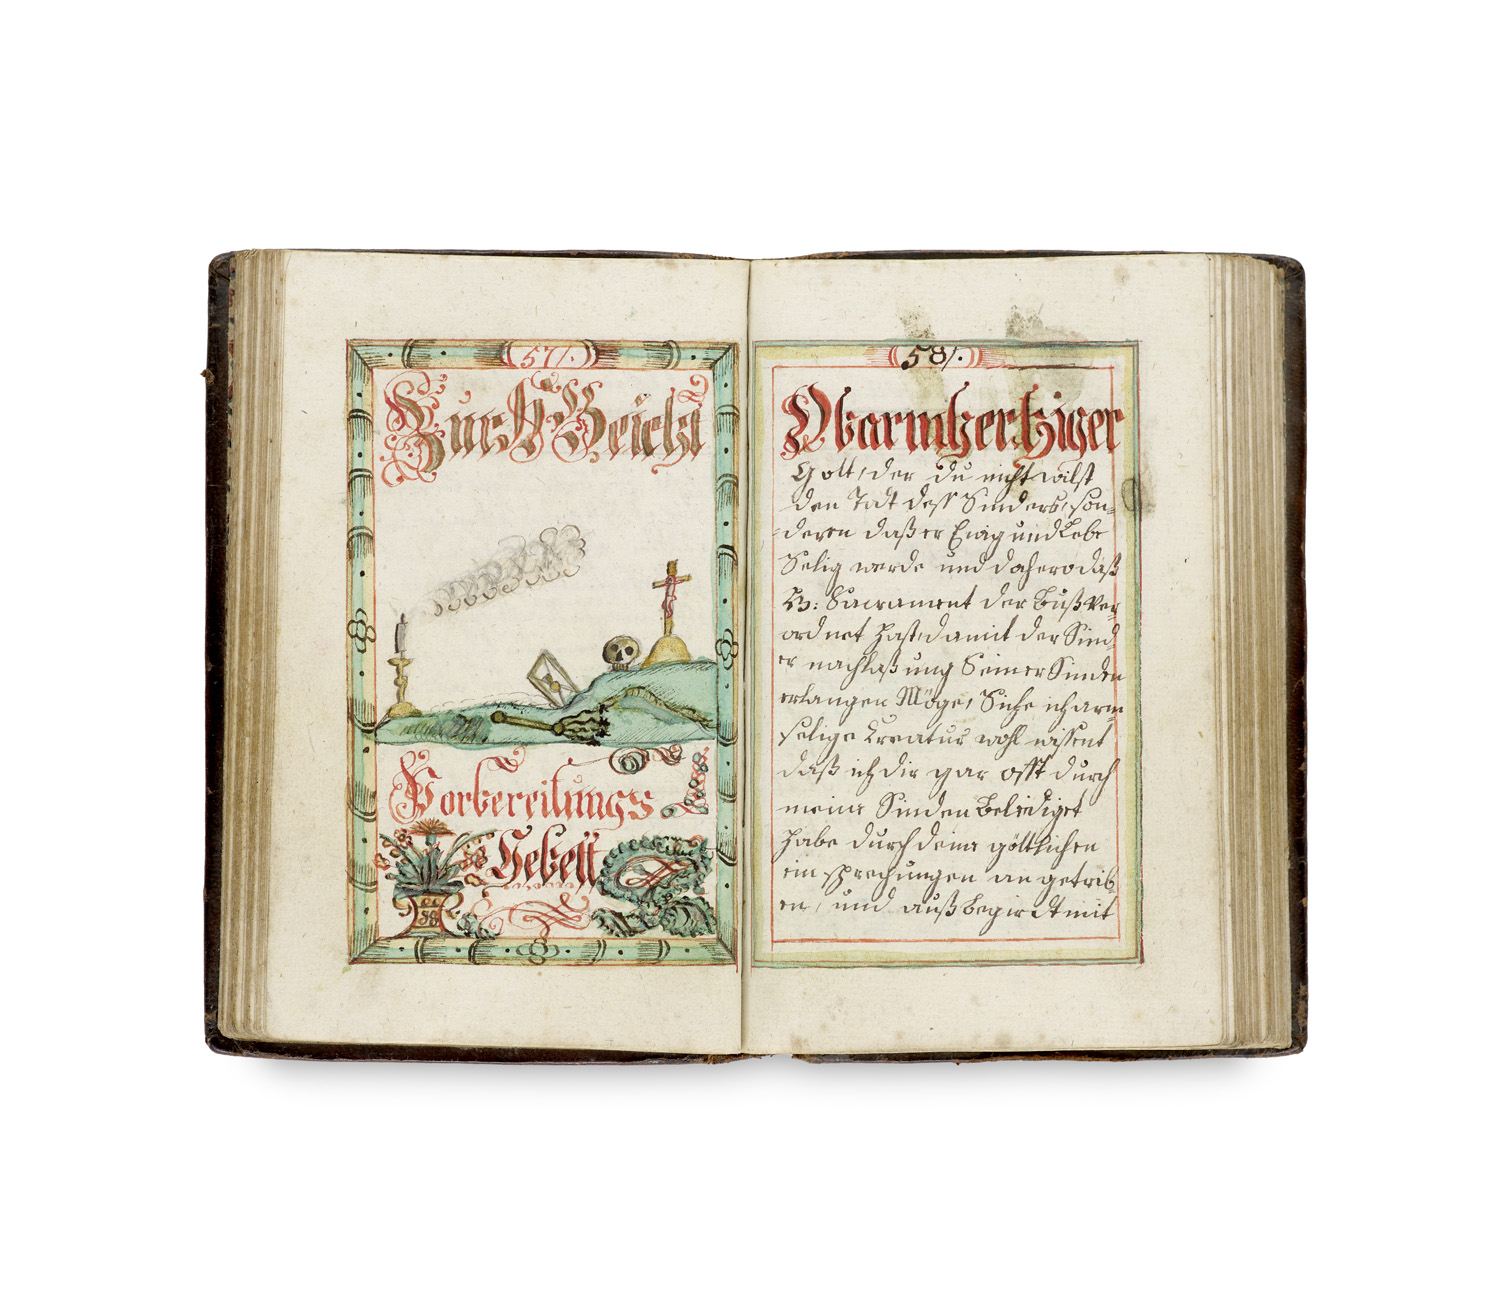 57/.
Zur Beicht
Vorbereitungs
Gebett
58/.
Obarmhertziger
Gott, der du nicht wilst
den Todt dess Sinders, son=
deren daß er Ewig und Lebe
Selig werde und dahero daß
H: Sacrament der Buß Ver
ordnet hast, damit der Sind=
er nachlaßung Seiner Sinden
erlangen Möge, Sihe ich arm
selige Kreatur wohl wissent
daß ich dir gar offt durch
meine Sinden Beleidiget
habe durch deine göttlichen
einsprechungen an getrib=
en, und auß begirdt mit